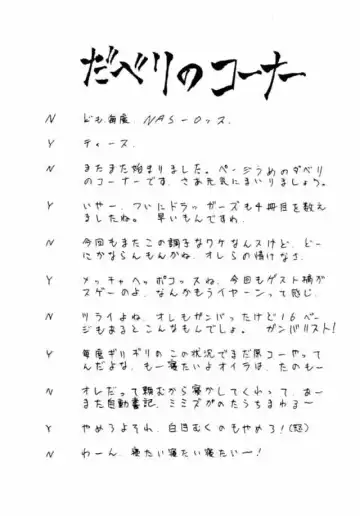 だべりのコーナー
N ども毎度、NAS-Oッス。
Y ティース。
N またまた始まりました。ページうめのダベリ
のコーナーです。さあ元気にまいりましょう。
Y いやー、ついにドラッガーズも4冊目を数え
ましたね。早いもんですわ。
N 今回もまたこの調子なワケなんスけど、どー
にかならんもんかね、オレらの情けなさ。
Y メッチャヘッポコっスね、今回もゲスト稿が
スゲーのよ、なんかもうイヤーンって感じ。
N ツライよね、オレもガンバったけど16ペー
ジもあるとこんなもんでしょ。ガンバリスト!
Y 毎度ギリギリのこの状況でまだ原コーやって
んだよな、もー寝たいよオイラは、たのもー
N オレだって頼むから寝かしてくれって、あー
また自動書記、ミミズがのたうちまわる〜
Y やめろよそれ、白目むくのもやめろ!(怒)
N わーん、寝たい寝たい寝たい〜!